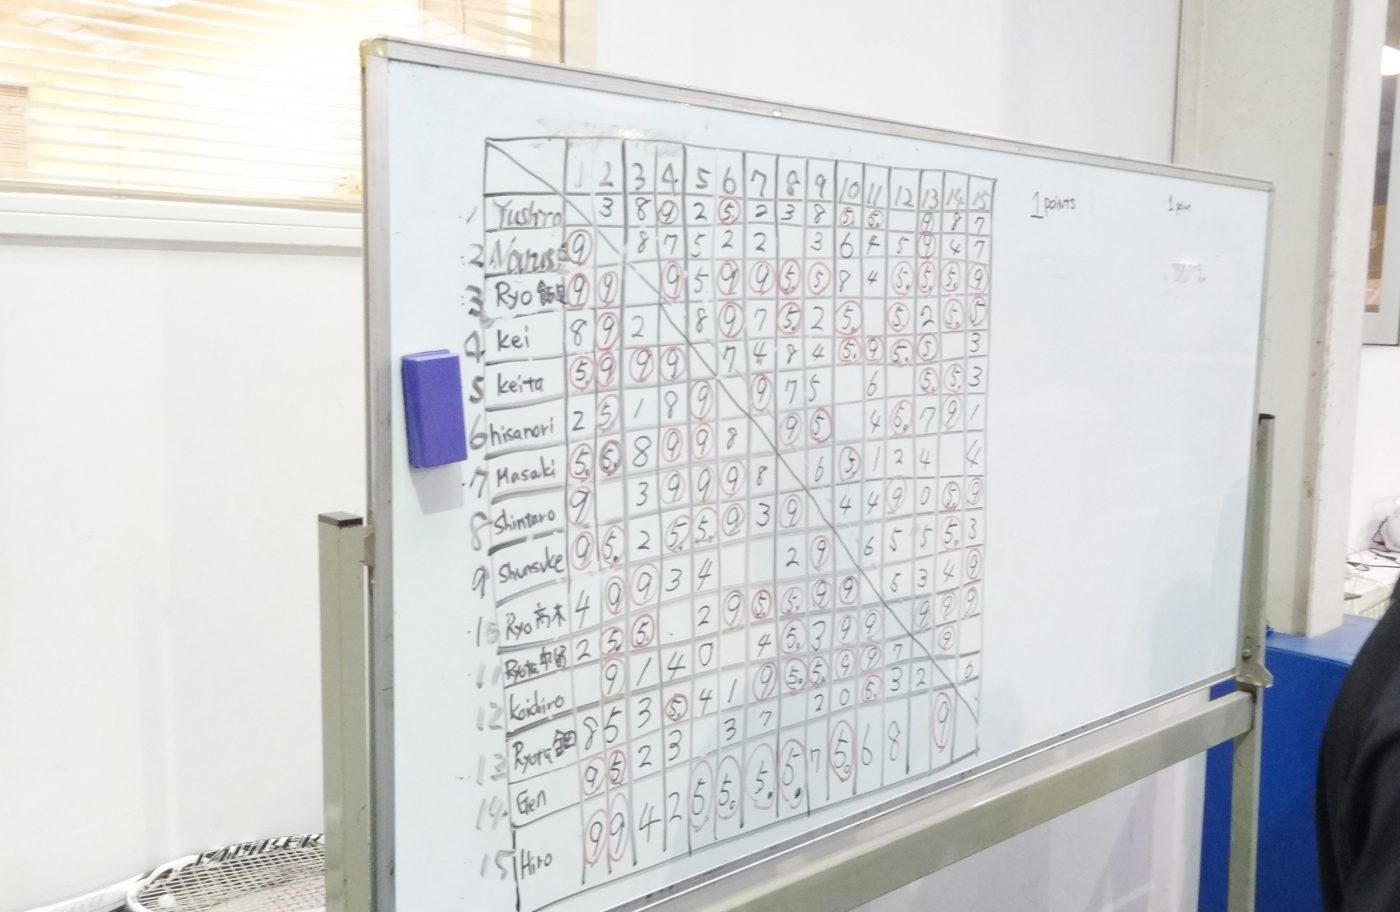 1 2 3 4 5 6 7 8 9 10 11 12 13 14 15
1 Yushiro 3 8 9 2 5. 2 3 8 5. 5. 9 8 7
2 9 8 7 5 2 2 3 6 4 5 9 4 7
3 Ryo 9 9 9 5 9 9 5. 5 8 4 5. 5. 5. 9
4 Kei 8 9 2 8 9 7 5. 2 5. 5 2 5. 5
5 Keita 5. 9 9 9 7 4 8 4 5. 9 5. 5 3
6 hisanori 2 5 1 8 9 9 7 5 6 5. 5. 3
7 Masaki 5. 5. 8 9 9 8 9 5 4 5. 7 9 1
8 Shintaro 9 3 9 9 9 8 6 5. 1 2 4 4
9 Shunsuke 9 5. 2 5. 5. 9 3 9 4 4 9 0 5. 9
10 Ryo 高木 4 9 9 3 4 2 9 6 5 5 5. 3
11 2 5. 5. 2 9 5 5. 9 9 5 3 4 9
12 Koichiro 9 1 4 0 4 5. 3 9 9 9 9 9
13 8 5 3 5. 4 1 9 5. 5. 9 9 7 9
14 Gen 9 5 2 3 3 7 2 0 5. 3 2 6
15 Hiro 9 9 4 2 5 5. 5. 5. 7 5. 6 8 9
1 points
1 poin